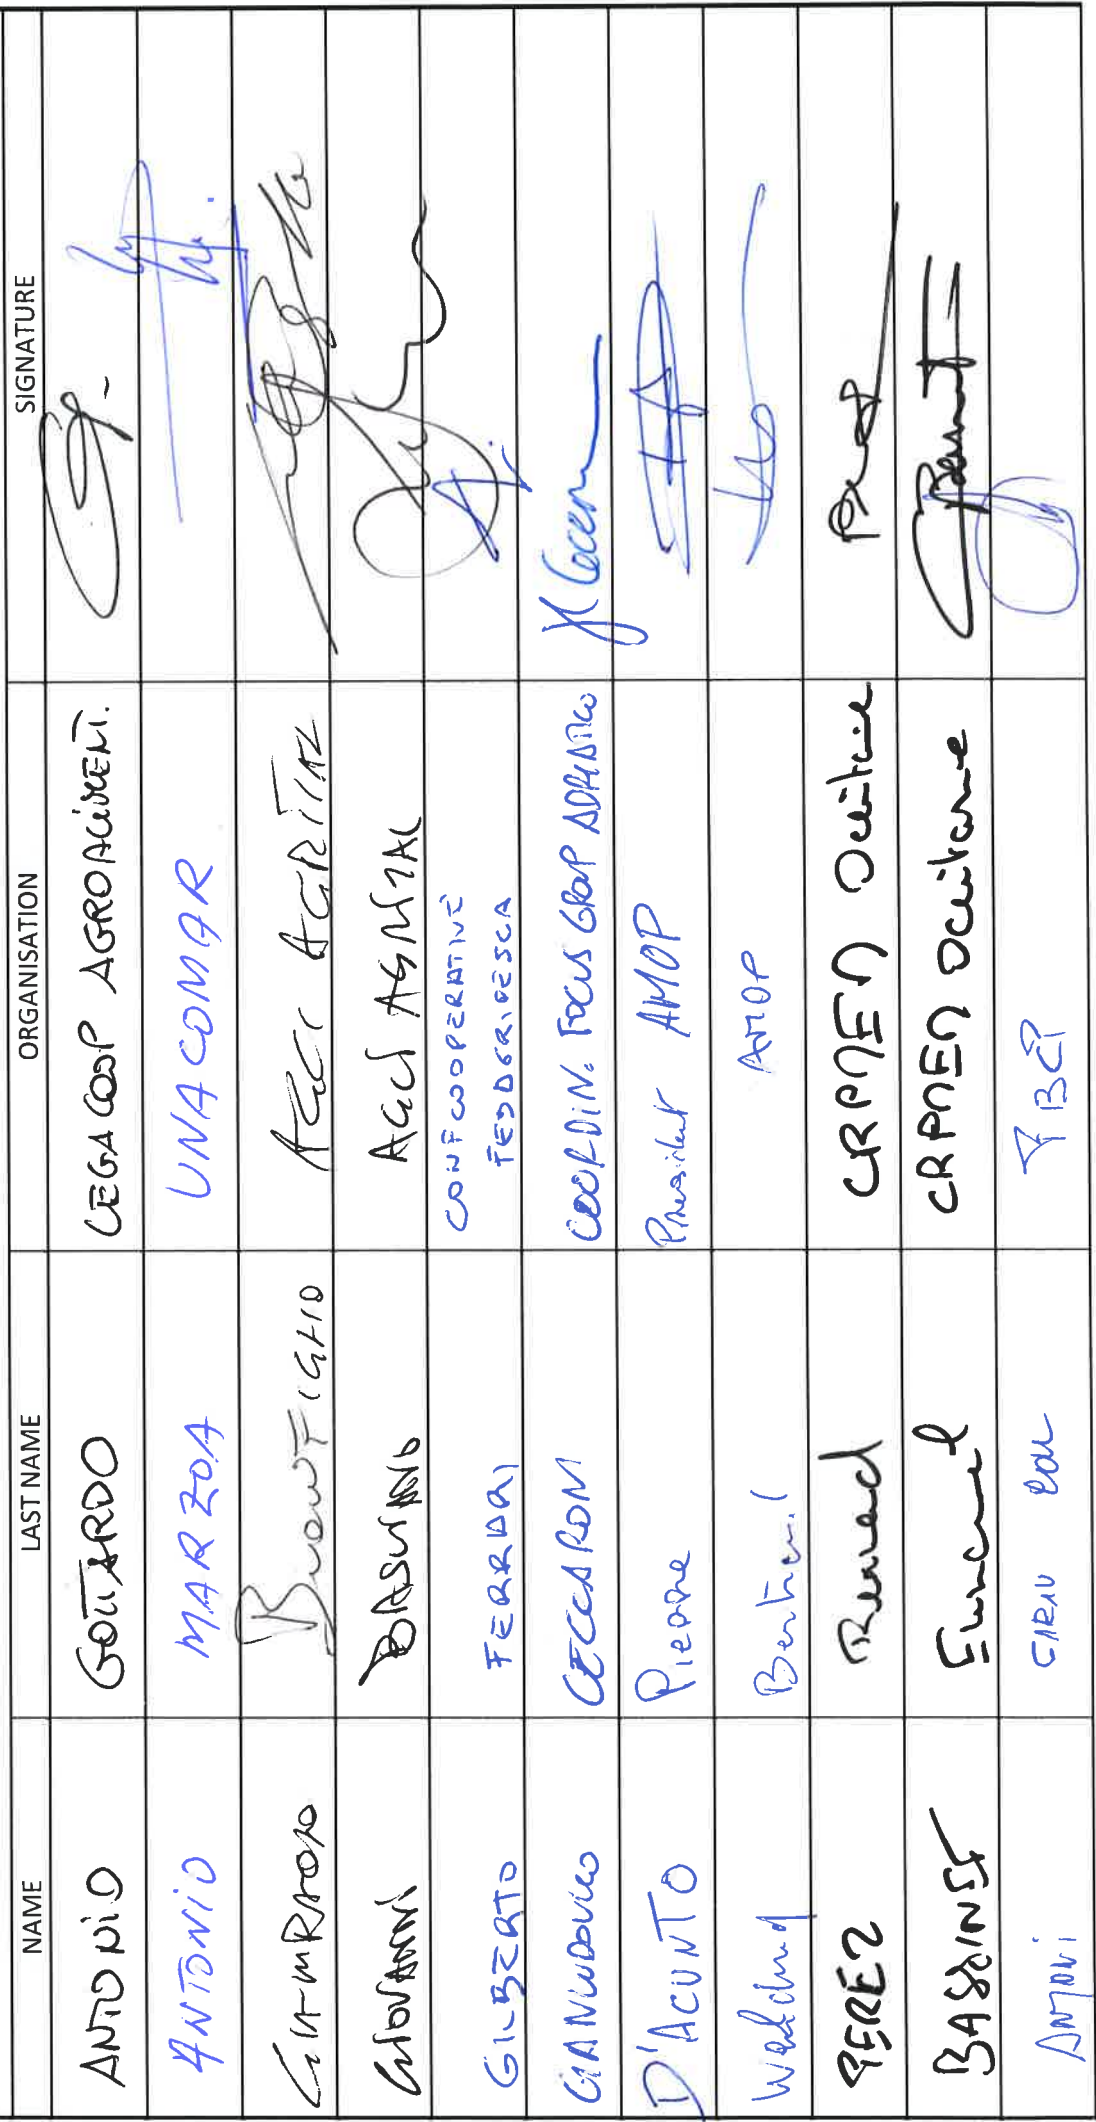 NAME LAST NAME ORGANISATION SIGNATURE
ANTONIO GOTTARDO LEGACOOP AGROALIMENT.
ANTONIO MARZOA UNACOMAR
GIAMPAOLO BUONFIGLIO AGCI AGRITAL
GIOVANNI BASCIANO AGCI AGRITAL
GILBERTO FERRARI CONFCOOPERATIVE
FEDAGRIPESCA
GIANLUDOVICO CECCARONI COORDIN. FOCUS GROUP ADRIATICO
D'ACUNTO Pierre President AMOP
Wendling Bertrand AMOP
PEREZ Renaud CRPMEM Occitanie
BASSINET Emmanuel CRPMEM Occitanie
ANTONI GARAU